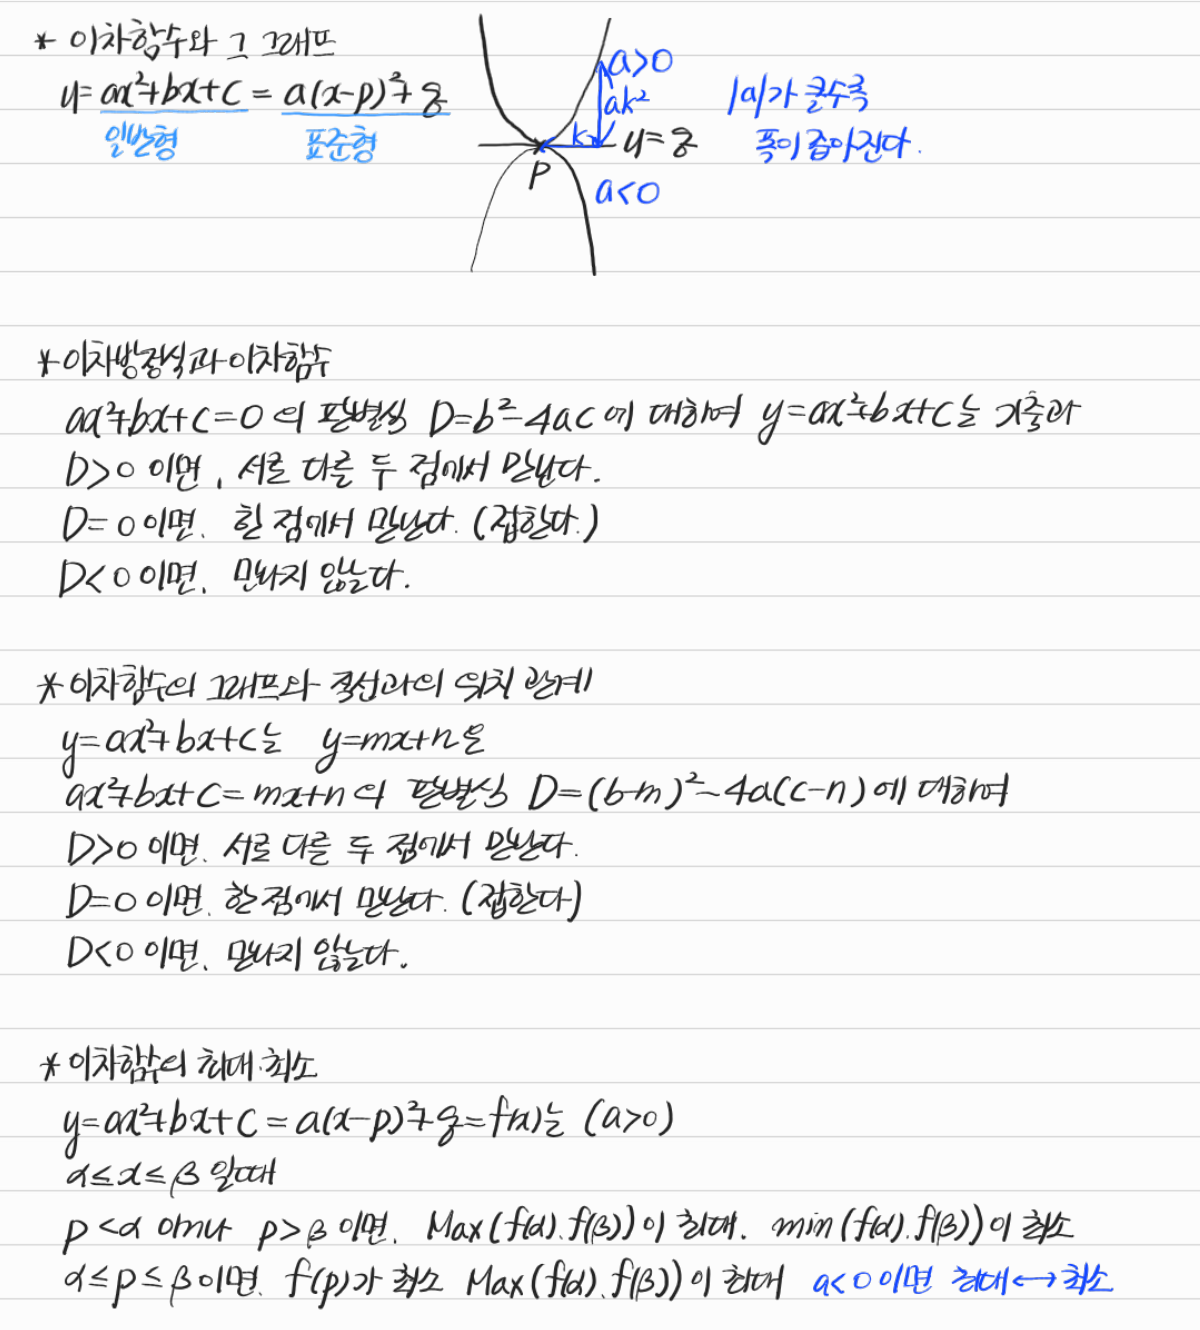 * 이차함수와 그 그래프
y=ax²+bx+c = a(x-p)²+q
일반형 표준형
a>0
ak²
k
y=q
p
a<0
|a|가 클수록
폭이 좁아진다.
* 이차방정식과 이차함수
ax²+bx+c=0 의 판별식 D=b²-4ac에 대하여 y=ax²+bx+c는 x축과
D>0 이면, 서로 다른 두 점에서 만난다.
D=0 이면, 한 점에서 만난다. (접한다.)
D<0 이면, 만나지 않는다.
* 이차함수의 그래프와 직선과의 위치 관계
y=ax²+bx+c는 y=mx+n은
ax²+bx+c=mx+n의 판별식 D=(b-m)²-4a(c-n)에 대하여
D>0 이면, 서로 다른 두 점에서 만난다.
D=0 이면, 한 점에서 만난다. (접한다)
D<0 이면, 만나지 않는다.
* 이차함수의 최대·최소
y=ax²+bx+c = a(x-p)²+q=f(x)는 (a>0)
α≤x≤β 일때
p<α or p>β 이면, Max(f(α), f(β))이 최대, min(f(α), f(β))이 최소
α≤p≤β이면, f(p)가 최소 Max(f(α), f(β))이 최대 a<0이면 최대↔최소